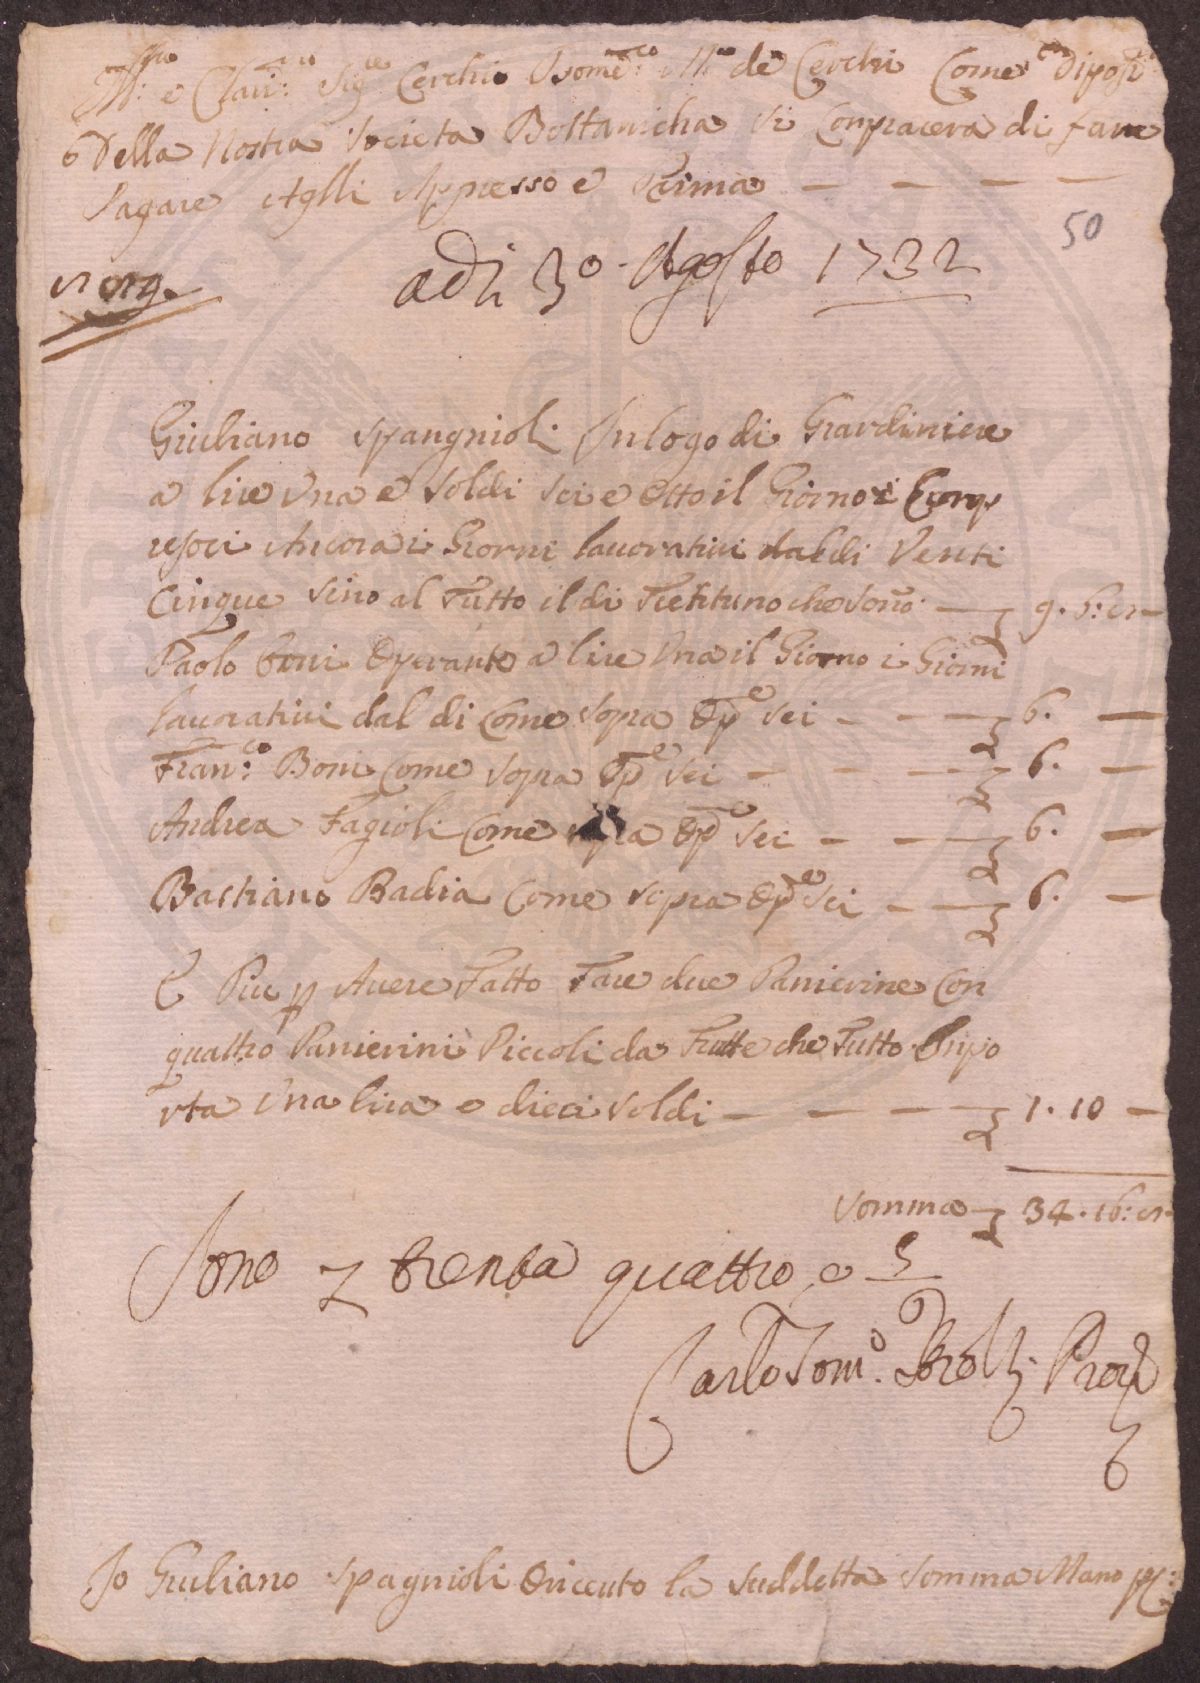 Ill:mo e Clar:mo Sig:re Cerchio de Cerchi Come Diposi
Della Nostra Societa Bottanicha Si Compiacera di fare
Pagare Aglli Appresso e Prima — — — —
50
adi 30 Agosto 1732
Giuliano Spangnioli In logo di Giardiniere
a lire Una e Soldi Sei e Otto il Giorno i Comp
resoci Ancora i Giorni lavorativi dal di Venti
Cinque Sino al Tutto il di Trentuno che Sono — 9. 6:
Paolo Boni Operante a lire Una il Giorno i Giorni
lavorativi dal di Come Sopra Op:e Sei — — — 6. —
Fran:co Boni Come Sopra Op:e Sei — — — 6. —
Andrea Fagioli Come Sopra Op:e Sei — — — 6. —
Bastiano Badia Come Sopra Op:e Sei — — 6. —
E Piu p Avere Fatto Fare due Panierine Con
quattro Panierini Piccoli da Frutte che Tutto Inpo
rta Una lira e dieci Soldi — — — — 1. 10 —
Somma 34. 16:
Sono trenta quattro e
Carlo Tom:o
Io Giuliano Spagnioli O riceuto la Suddetta Somma Mano